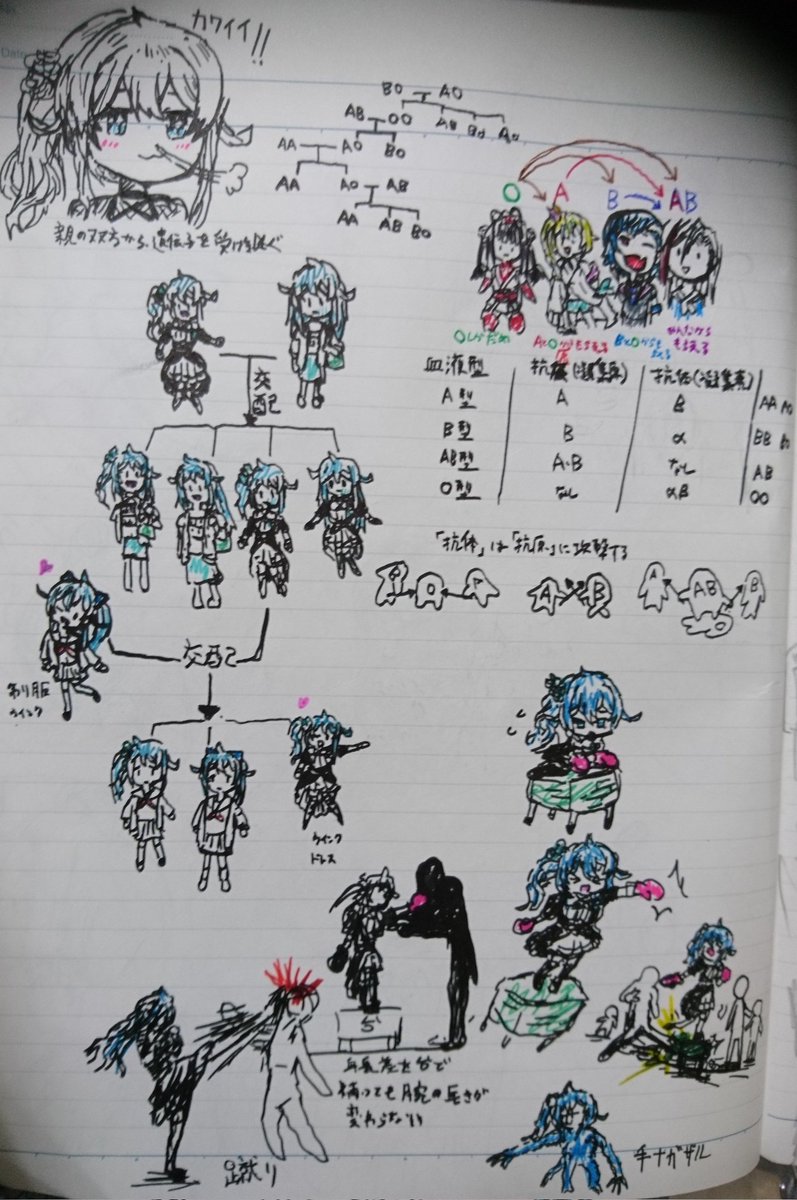 カワイイ!!
Date
BO AO
AB OO AB BO AO
AA AO BO
AA AO AB
AA AB BO
親の双方から、遺伝子を受け継ぐ
O A B AB
Oしかだめ
AとOからもらえる
BとOからもらえる
みんなから
もらえる
血液型 抗原(凝集原) 抗体(凝集素)
A型 A β AA AO
B型 B α BB BO
AB型 A・B なし AB
O型 なし αβ OO
「抗体」は「抗原」に攻撃する
A B
A AB B
交配
交配
制服
ウインク
ウインク
ドレス
台で
補っても腕の長さが
変わらない
蹴り
手ナガザル